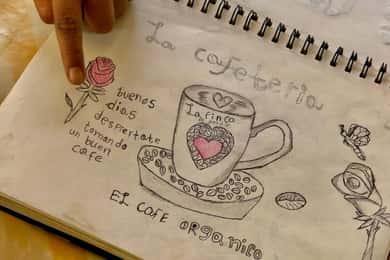 La cafeteria
buenos
dias
despiertate
tomando
un buen
cafe
La finca
El cafe organico